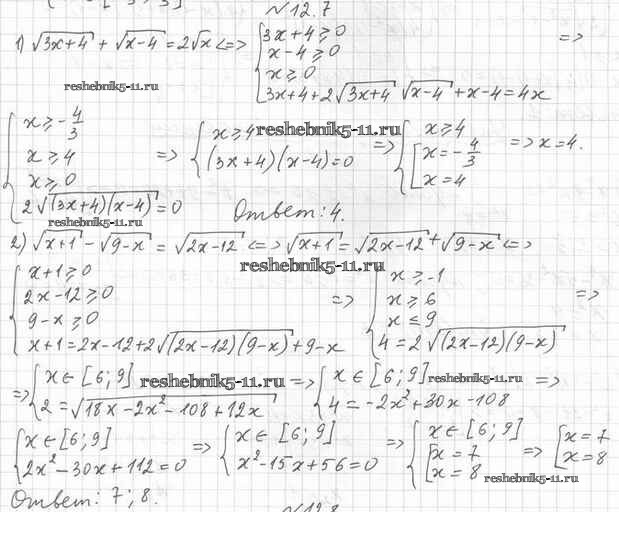 №12.7
1) √(3x+4) + √(x-4) = 2√x <=> { 3x+4 ≥ 0 =>
x-4 ≥ 0
x ≥ 0
3x+4+2√(3x+4) √(x-4) + x-4 = 4x
reshebnik5-11.ru
{ x ≥ -4/3
x ≥ 4
x ≥ 0
2√((3x+4)(x-4)) = 0
=> { x ≥ 4
(3x+4)(x-4)=0
=> { x ≥ 4
[ x = -4/3
x = 4
=> x=4.
reshebnik5-11.ru
reshebnik5-11.ru
Ответ: 4.
2) √(x+1) - √(9-x) = √(2x-12) <=> √(x+1) = √(2x-12) + √(9-x) <=>
reshebnik5-11.ru
{ x+1 ≥ 0
2x-12 ≥ 0
9-x ≥ 0
x+1=2x-12+2√((2x-12)(9-x))+9-x
=> { x ≥ -1
x ≥ 6
x ≤ 9
4 = 2√((2x-12)(9-x))
=>
=> { x ∈ [6; 9]
2 = √(18x-2x²-108+12x)
reshebnik5-11.ru
=> { x ∈ [6; 9]
4 = -2x²+30x-108
reshebnik5-11.ru
=>
{ x ∈ [6; 9]
2x²-30x+112=0
=> { x ∈ [6; 9]
x²-15x+56=0
=> { x ∈ [6; 9]
[ x = 7
x = 8
=> [ x = 7
x = 8
reshebnik5-11.ru
Ответ: 7; 8.
№12.8